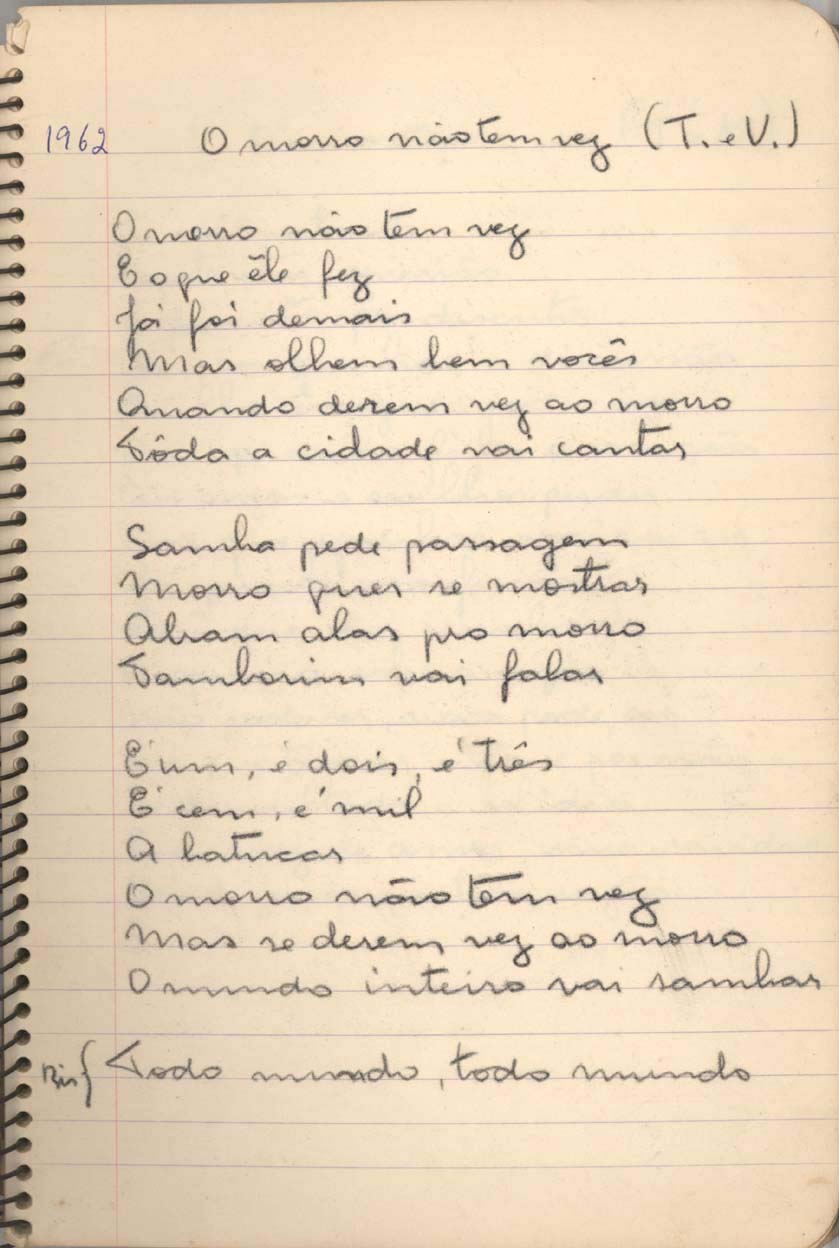 1962 O morro não tem vez (T. e V.)
O morro não tem vez
E o que êle fez
Já foi demais
Mas olhem bem vocês
Quando derem vez ao morro
Tôda a cidade vai cantar
Samba pede passagem
Morro quer se mostrar
Abram alas pro morro
Tamborim vai falar
É um, é dois, é três
É cem, é mil
A batucar
O morro não tem vez
Mas se derem vez ao morro
O mundo inteiro vai sambar
Bis { Todo mundo, todo mundo